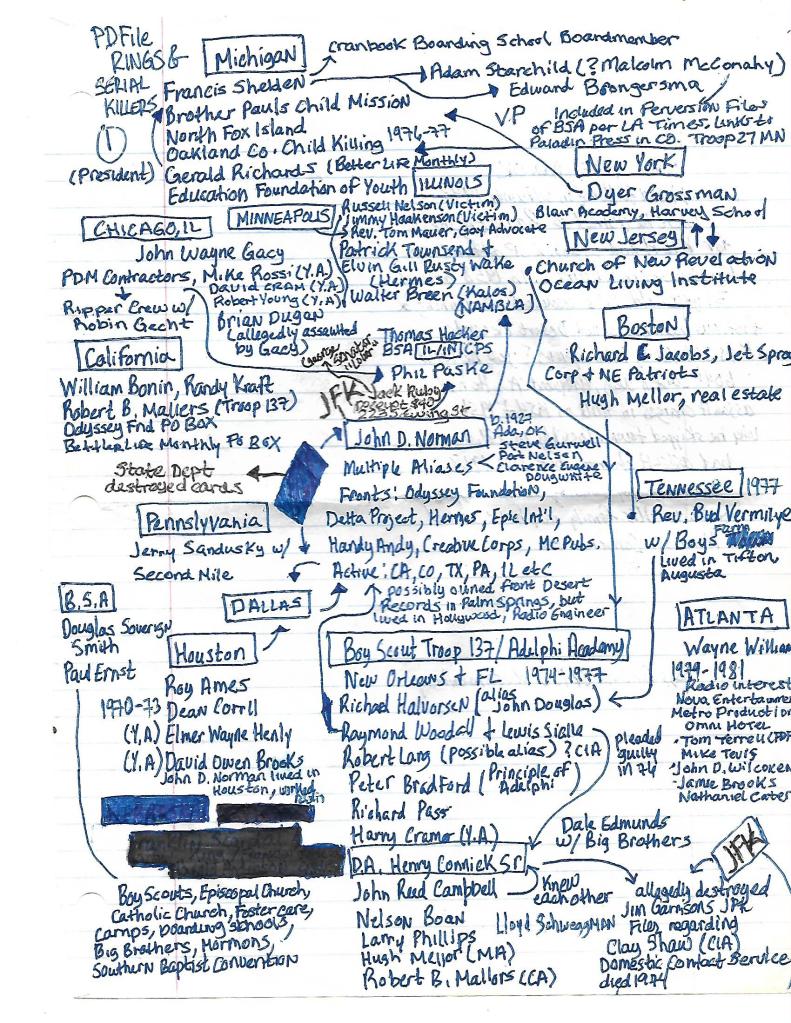 PDFile
RINGS &
SERIAL
KILLERS
1
Michigan
Cranbook Boarding School Boardmember
Francis Shelden
Adam Starchild (? Malcolm McConahy)
Edward Brongersma
Brother Pauls Child Mission
V.P
Included in Perversion Files
of BSA per LA Times, links to
Paladin Press in CO. Troop 27 MN
North Fox Island
Oakland Co. Child Killing 1976-77
(President)
Gerald Richards (Better Life Monthly)
Education Foundation of Youth
New York
Dyer Grossman
Blair Academy, Harvey School
ILLINOIS
MINNEAPOLIS
Russell Nelson (Victim)
Jimmy Haakenson (Victim)
Rev. Tom Maurer, Gay Advocate
Patrick Townsend &
Elvin Gill Rusty Wake
(Hermes)
Walter Breen (Kalos)
(NAMBLA)
New Jersey
Church of New Revelation
Ocean Living Institute
CHICAGO, IL
John Wayne Gacy
PDM Contractors, Mike Rossi (Y.A)
DAVID CRAM (Y.A)
Robert Young (Y.A)
Ripper Crew w/
Robin Gecht
Brian Dugan
(allegedly assaulted
by Gacy)
Thomas Hacker
BSA IL/IN CPS
Phil Paske
Boston
Richard C Jacobs, Jet Spra
Corp & NE Patriots
Hugh Mellor, real estate
California
William Bonin, Randy Kraft
Robert B. Mallers (Troop 137)
Odyssey Fnd PO BOX
Better Life Monthly PO BOX
JFK
Jack Ruby
Ewing St
John D. Norman
b. 1927
Ada, OK
Multiple Aliases
Steve Gurwell
Pat Nelsen
Clarence Eugene
Doug White
State Dept
destroyed cards
Fronts: Odyssey Foundation,
Delta Project, Hermes, Epic Int'l,
Handy Andy, Creative Corps, MC Pubs.
Active: CA, CO, TX, PA, IL etc
possibly owned Front Desert
Records in Palm Springs, but
lived in Hollywood, Radio Engineer
Pennslyvania
Jerry Sandusky w/
Second Mile
TENNESSEE 1977
Rev. Bud Vermilye
w/ Boys Farm
lived in Tifton,
Augusta
B.S.A
Douglas Soverign
Smith
Paul Ernst
DALLAS
Houston
Roy Ames
1970-73 Dean Corll
(Y,A) Elmer Wayne Henly
(Y,A) David Owen Brooks
John D. Norman lived in
Houston, worked
Boy Scout Troop 137/Adelphi Academy
New Orleans & FL 1974-1977
Richard Halvorsen (alias
John Douglas)
Raymond Woodall & Lewis Sialle
Robert Lang (possible alias) ? CIA
Peter Bradford (Principle of
Adelphi)
Richard Pass
Harry Cramer (Y.A)
pleaded
guilty
in 76
ATLANTA
Wayne William
1979-1981
Radio interest
Nova Entertainmen
Metro Production
OMNI HOTEL
Tom Terrell (FDF
Mike Tevis
John D. Wilcoxen
Jamie Brooks
Nathaniel Cater
D.A. Henry Connick Sr
John Reed Campbell
Nelson Boan
Larry Phillips
Hugh Mellor (MA)
Robert B. Mallors (CA)
Knew
each other
Lloyd Schwegman
Dale Edmunds
w/ Big Brothers
JFK
allegedly destroyed
Jim Garrisons JFK
Files regarding
Clay Shaw (CIA)
Domestic Contact Service
died 1974
Boy Scouts, Episcopal Church,
Catholic Church, Foster care,
Camps, boarding schools,
Big Brothers, Mormons,
Southern Baptist Convention